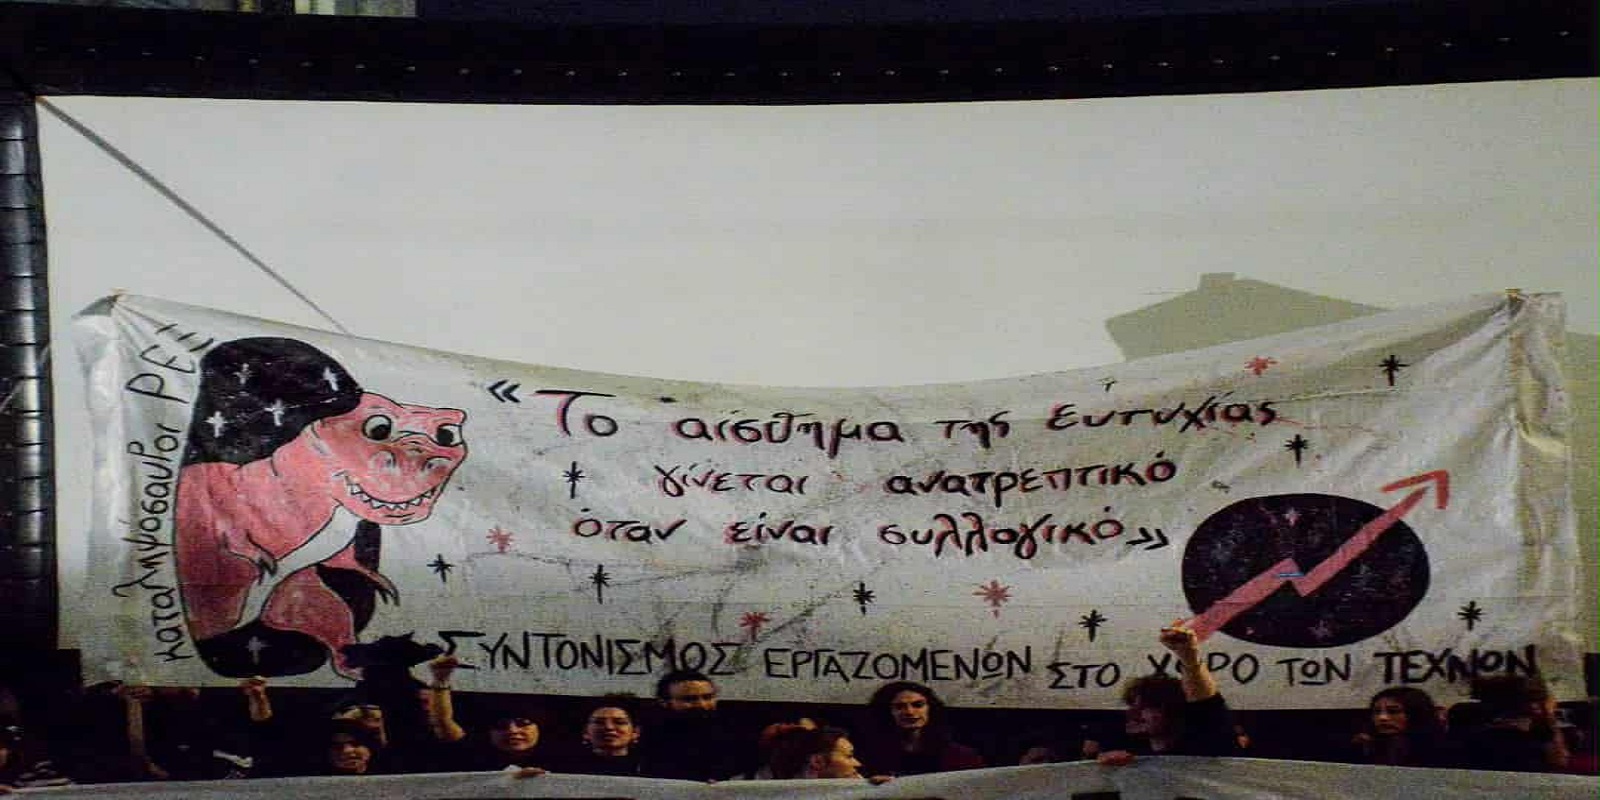 καταληψόσαυροι ΡΕΞ
«Το αίσθημα της ευτυχίας
γίνεται ανατρεπτικό
όταν είναι συλλογικό»
ΣΥΝΤΟΝΙΣΜΟΣ ΕΡΓΑΖΟΜΕΝΩΝ ΣΤΟ ΧΩΡΟ ΤΩΝ ΤΕΧΝΩΝ